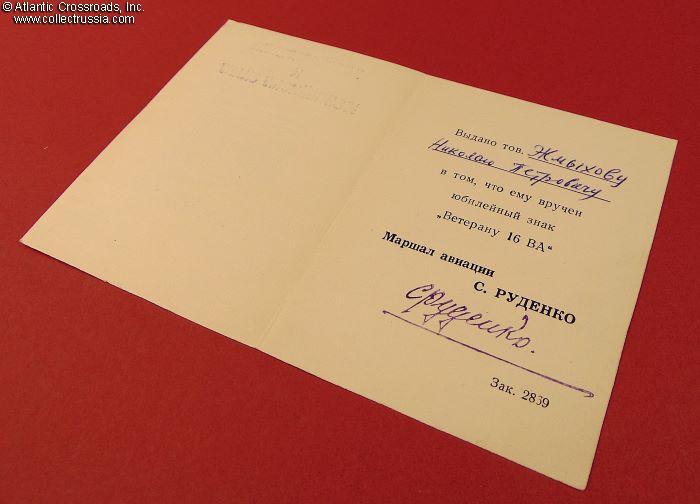 © Atlantic Crossroads, Inc.
www.collectrussia.com
Выдано тов. Жмыхову
Николаю Петровичу
в том, что ему вручен
юбилейный знак
„Ветерану 16 ВА“
Маршал авиации
С. РУДЕНКО
СРуденко.
Зак. 2859